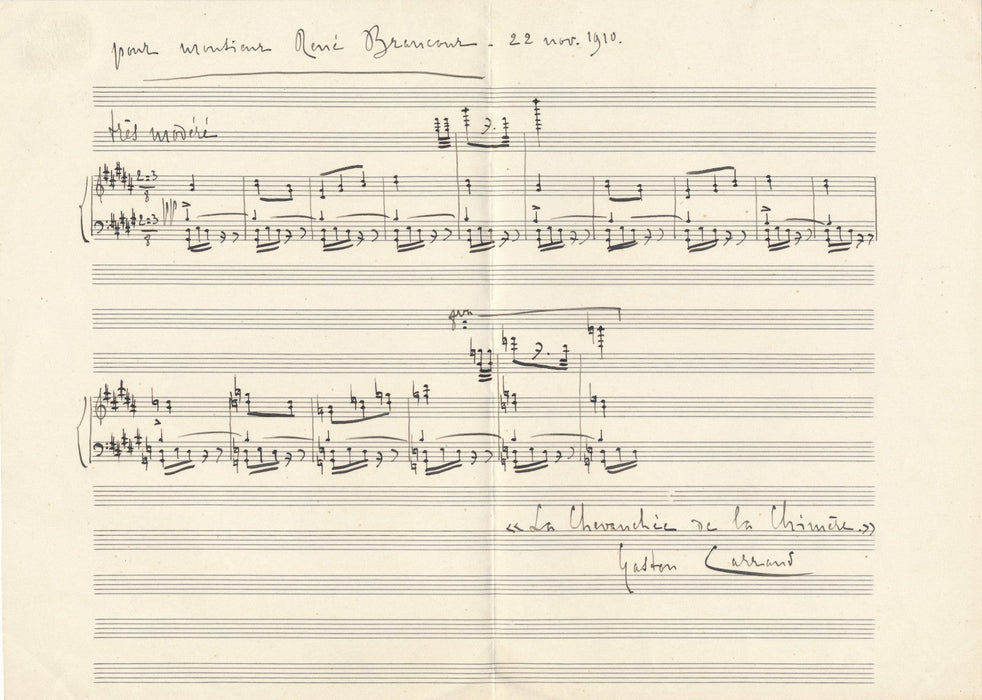 pour monsieur René Brancour - 22 nov. 1910.
très modéré
2=3
8
2=3
8
8va
« La Chevauchée de la Chimère. »
Gaston Carraud